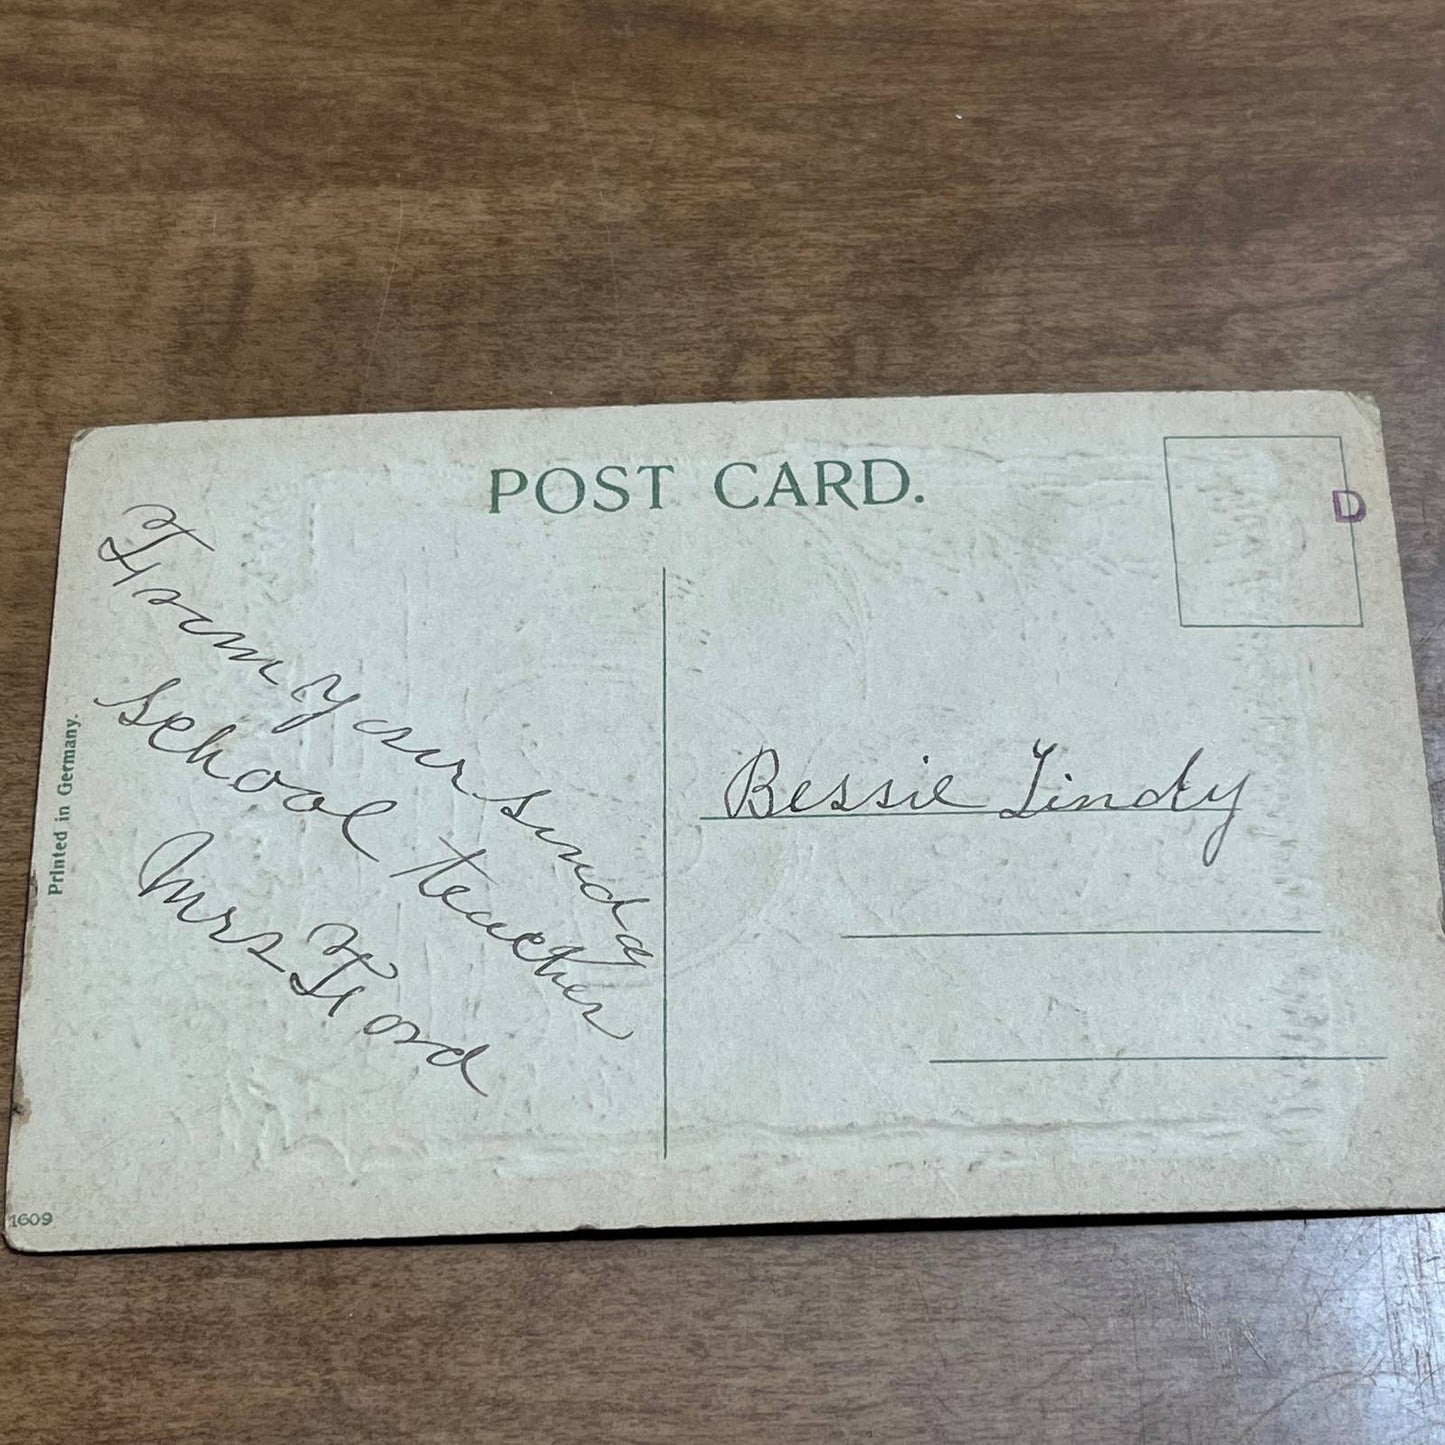 POST CARD.
D
From your sunda
school teacher
Mrs Ford
Bessie Lindy
Printed in Germany.
1609